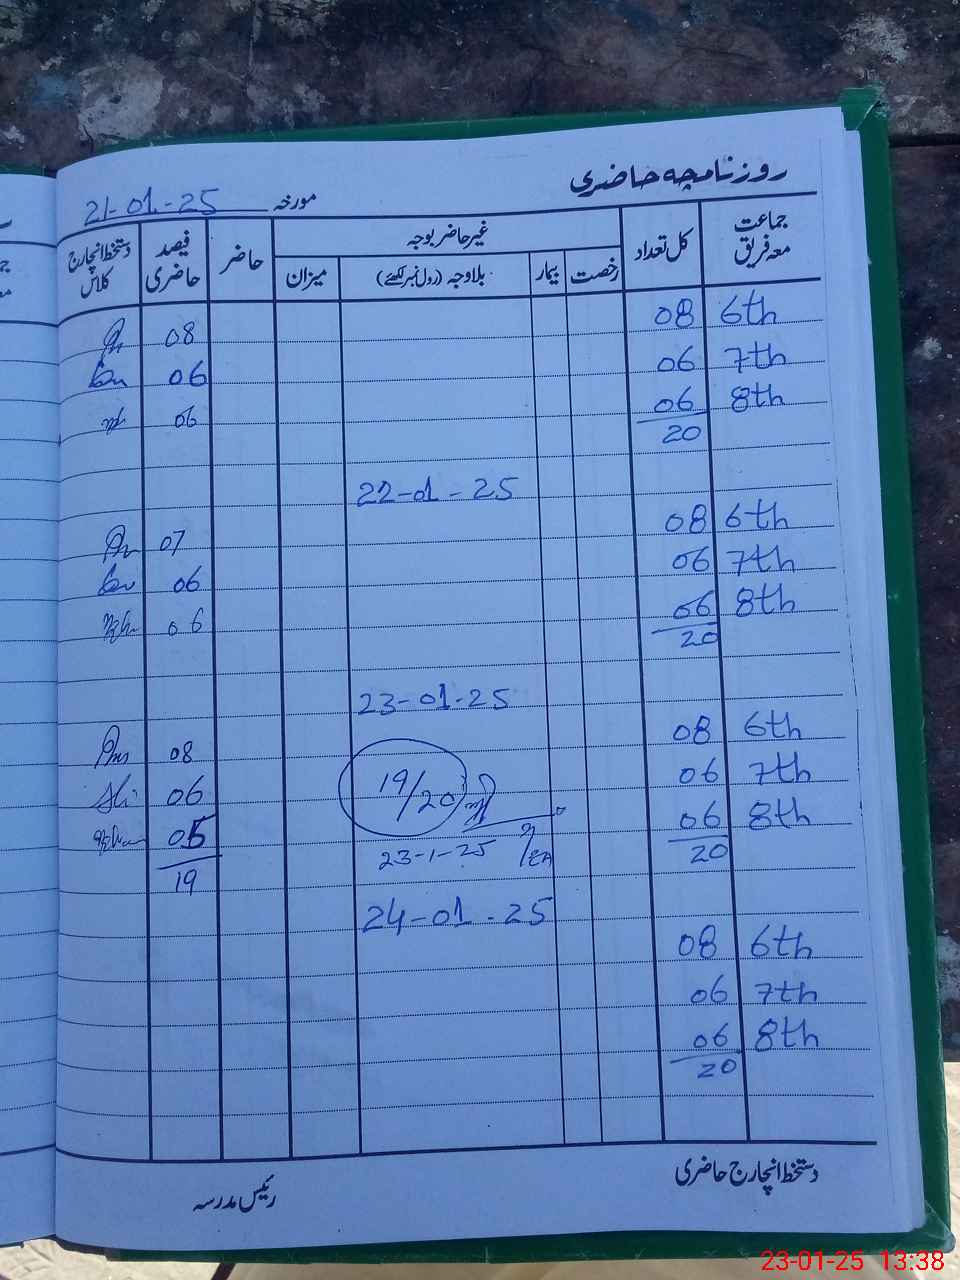 روزنامچہ حاضری
مورخہ 21-01-25
جماعت معہ فریق کل تعداد غیر حاضر بوجہ حاضر فیصد حاضری دستخط انچارج کلاس
رخصت بیمار بلاوجہ (رول نمبر لکھئے) میزان
6th 08 08
7th 06 06
8th 06 06
20
22-01-25
6th 08 07
7th 06 06
8th 06 06
20
23-01-25
6th 08 08
7th 06 19/20 06 Ali
8th 06 05
20 23-1-25 19
24-01-25
6th 08
7th 06
8th 06
20
دستخط انچارج حاضری
رئیس مدرسہ
23-01-25 13:38